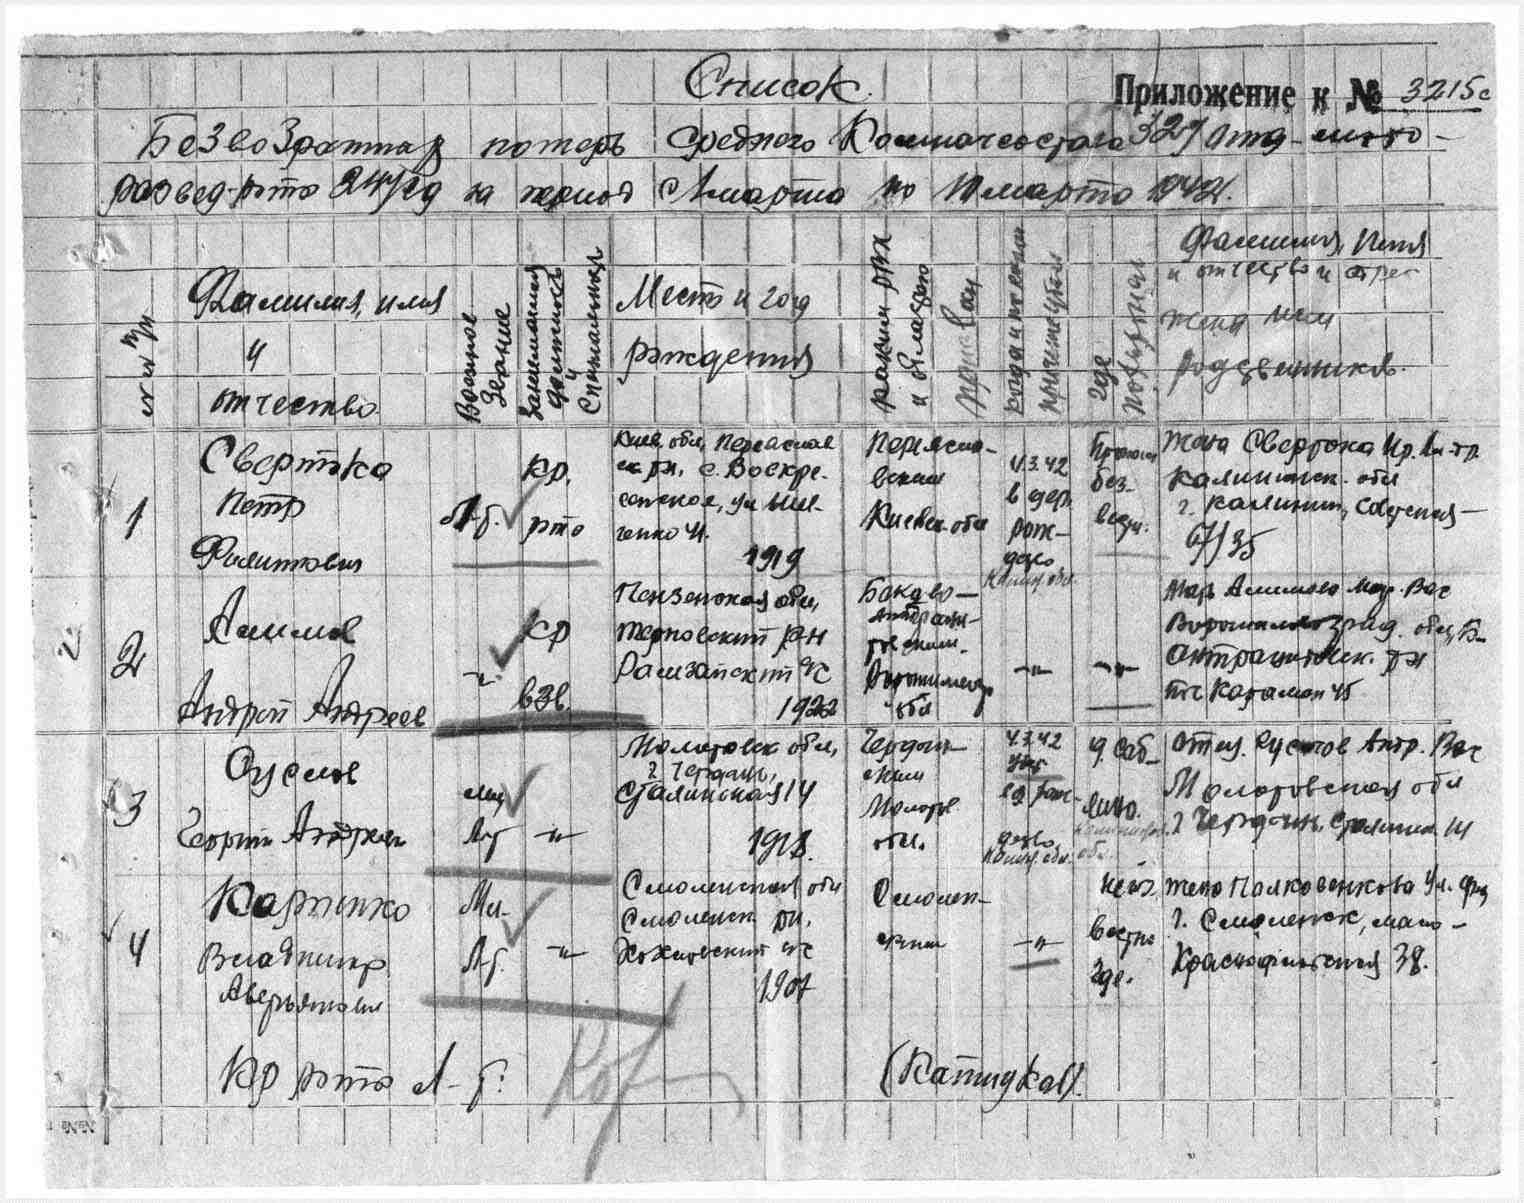 Список.
Приложение к № 3215с
Безвозвратных потерь среднего Комначсостава 327 отд. мото-
развед-роты 247 сд за период с 1 марта по 10 марта 1942 г.
№№ п/п
Фамилия, имя
и
отчество
Военное
звание
Занимаемая
должность
и
специальность
Место и год
рождения
Каким РВК
и область
призван
Когда и по какой
причине убыл
Где
похоронен
Фамилия, имя
и отчество и адрес
жены или
родственников.
1
Свертока
Петр
Филиппович
Л-т.
Кр.
роты
Киев. обл, Переяслав
ск. рн, с. Воскре-
сенское, ул Шев-
ченко 41.
1919
Переясла-
вский
Киевск. обл
4.3.42
в дер.
Рож-
дество
Калин. обл.
без
вести.
Жена Свертока Ир.
Калининск. обл
г. Калинин, Советская
67/35
2
Акимов
Андрей Андреев
-"-
Кр
взв.
Пензенская обл,
рн
Рамзайский с/с
1922
Боково-
Антраци-
товский.
Ворошиловгр
обл
-"-
-"-
Мать Акимова Мар. Вас
Ворошиловград. обл, Б-
Антрацитовск. рн
пос Карамон 45
3
Суслов
Георгий Андреев
мл
Л-т
-"-
Молотовск обл,
г. Чердынь,
Сталинская 14
1918.
Чердын-
ский
Молотов.
обл.
4.3.42
в д. Рож-
дество
Калин. обл.
д. Саб-
лино.
Калининск.
обл.
Отец Суслов Андр. Вас
Молотовская обл
г. Чердынь, Сталина 14
4
Карпенко
Владимир
Аверьянович
Мл-
Л-т.
-"-
Смоленская обл
Смоленск рн,
Хохловский с/с
1907
Смолен-
ский
-"-
неиз-
вестно
где.
Жена Полковенкова Ул.
г. Смоленск, мало-
Краснофлотская 38.
КР роты Л-т:
(Катюков).